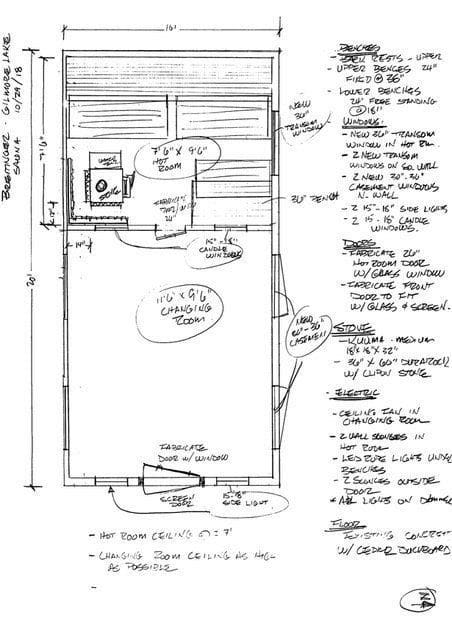 BREITINGER - GILMORE LAKE
SAUNA 10/29/18
10'
20'
7'6"
7'6" X 9'6"
HOT
ROOM
STOVE
FABRICATE
24"
NEW
36"
TRANSOM
WINDOW
36" BENCH
15"-18"
CANDLE
WINDOWS
11'6" X 9'6"
CHANGING
ROOM
NEW
30"-36"
CASEMENT
FABRICATE
DOOR W/ WINDOW
SCREEN
DOOR
15-18"
SIDE LIGHT
- HOT ROOM CEILING @ = 7'
- CHANGING ROOM CEILING AS HIGH
AS POSSIBLE
BENCHES
- BACK RESTS - UPPER
- UPPER BENCHES 24"
FIXED @ 36"
- LOWER BENCHES
24" FREE STANDING
@ 18"
WINDOWS
- NEW 36" TRANSOM
WINDOW IN HOT RM
- 2 NEW TRANSOM
WINDOWS ON SO. WALL
- 2 NEW 30"-36"
CASEMENT WINDOWS
N. WALL
- 2 15"-18" SIDE LIGHTS
- 2 15-18" CANDLE
WINDOWS.
DOORS
- FABRICATE 26"
HOT ROOM DOOR
W/ GLASS WINDOW
- FABRICATE FRONT
DOOR TO FIT
W/ GLASS & SCREEN.
STOVE
- KUUMA - MEDIUM
18 X 18 X 32"
- 36" X 60" DUROROCK
W/ STONE
- ELECTRIC
- CEILING FAN IN
CHANGING ROOM
- 2 WALL SCONCES IN
HOT ROOM
- LED ROPE LIGHTS UNDER
BENCHES
- 2 SCONCES OUTSIDE
DOOR
* ALL LIGHTS ON DIMMER
FLOOR
EXISTING CONCRETE
W/ CEDAR DUCKBOARD
N